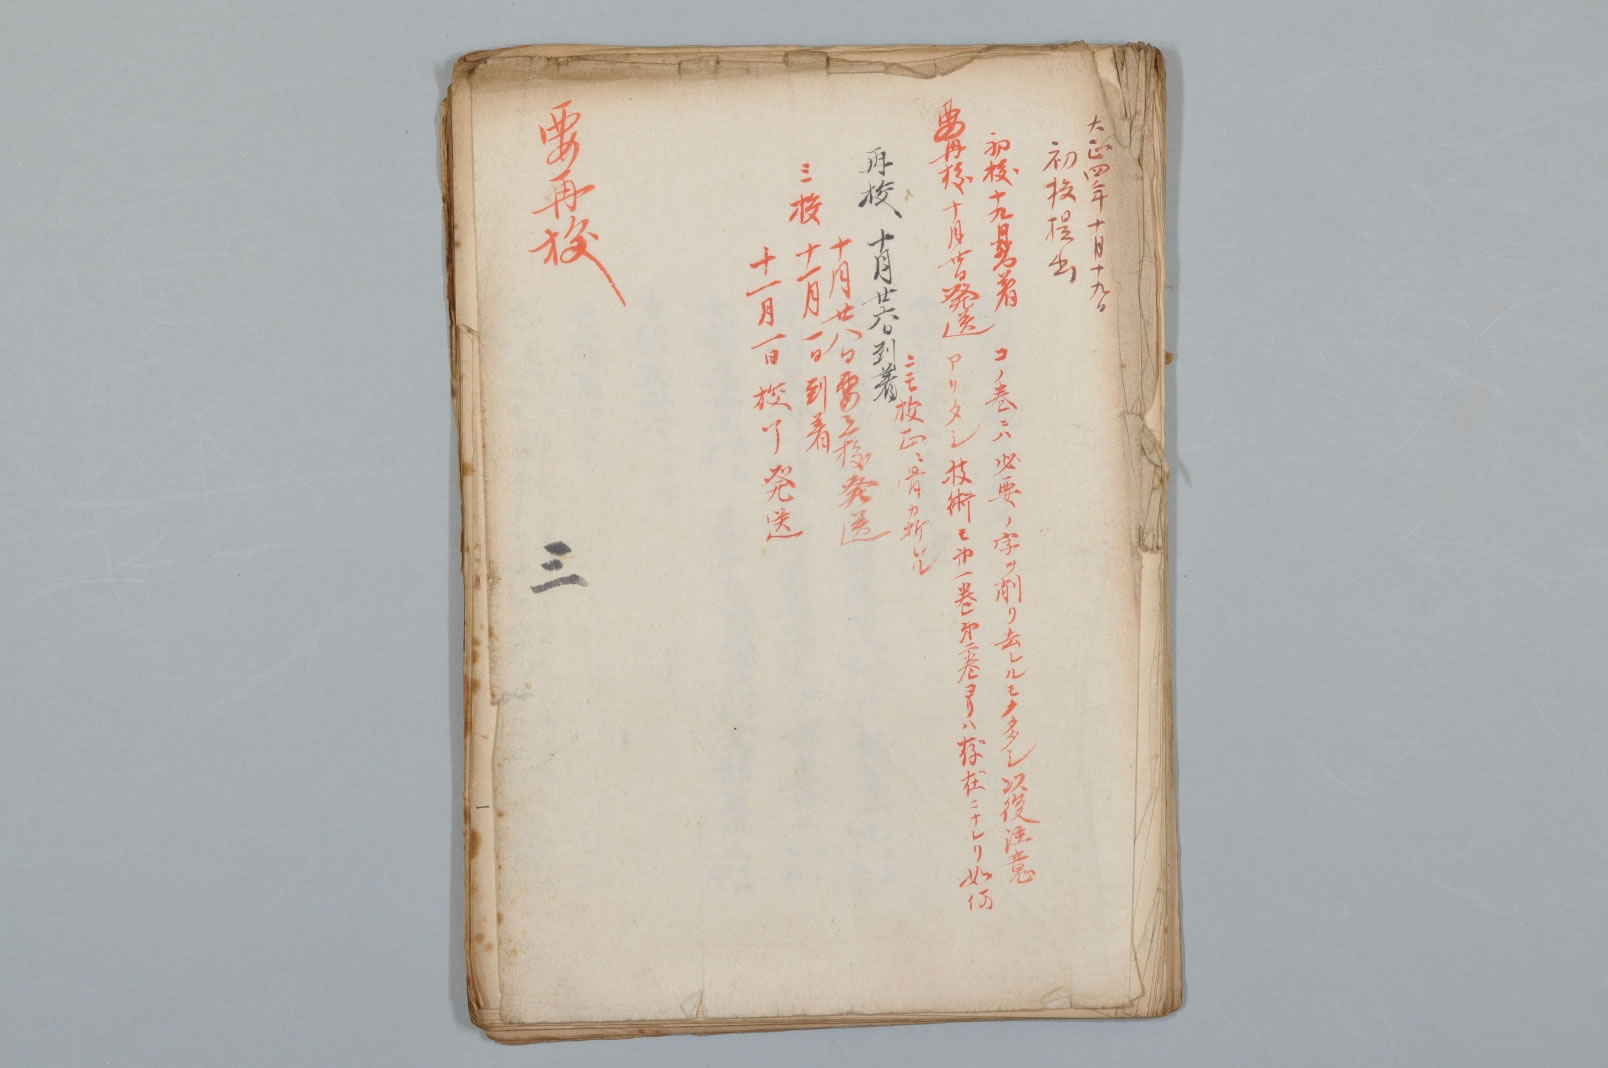 大正四年十月十九日
初校提出
初校十九日到着
コノ巻ニハ必要ノ字ヲ削リ去レルモノ多シ以後注意
要再校十月廿日発送
アリタシ技術モ第一巻第二巻ヨリハ存在ニナレリ如何
ニモ校正ニ骨カ折レル
再校 十月廿六日到着
十月廿八日要三校発送
三校 十一月一日到着
十一月一日校了発送
三
要再校